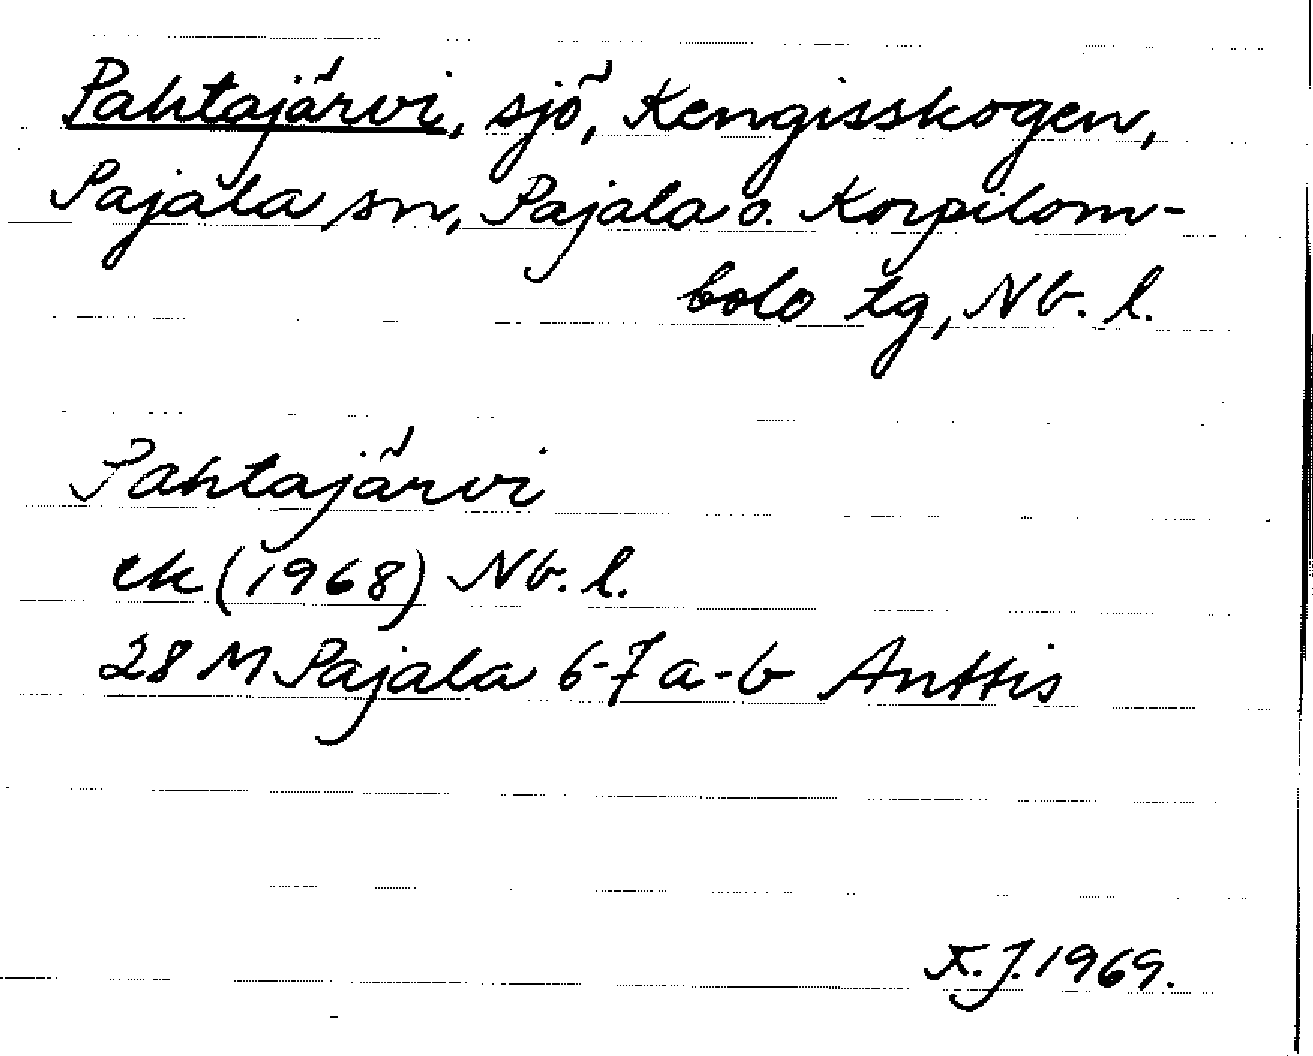 Pahtajärvi, sjö, Kengisskogen,
Pajala sn, Pajala o. Korpilom-
bolo tg, Nb. l.
Pahtajärvi
ek (1968) Nb. l.
28 M Pajala 6-7 a-b Anttis
F. J. 1969.